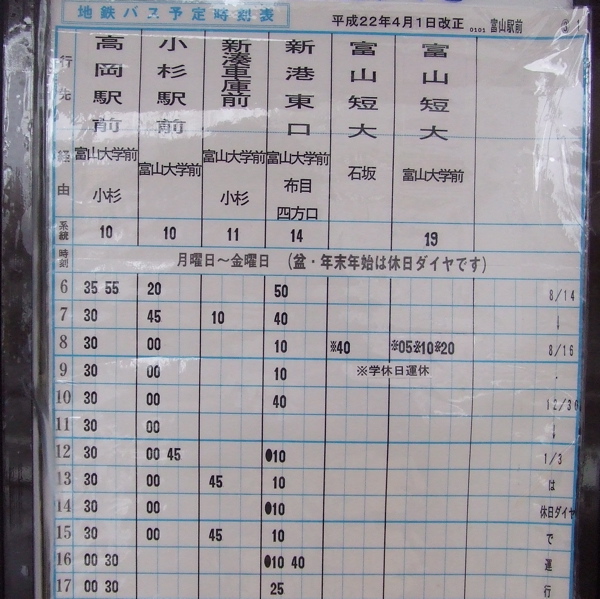 地鉄バス予定時刻表 平成22年4月1日改正 0101 富山駅前
行先 高岡駅前 小杉駅前 新湊車庫前 新港東口 富山短大 富山短大
経由 富山大学前 小杉 富山大学前 富山大学前 小杉 富山大学前 布目 四方口 石坂 富山大学前
系統 10 10 11 14 19
時刻 月曜日～金曜日 (盆・年末年始は休日ダイヤです)
6 35 55 20 50 8/14
7 30 45 10 40 ↓
8 30 00 10 ※40 ※05※10※20 8/16
9 30 00 10 ※学休日運休 ・
10 30 00 40 12/30
11 30 00 ↓
12 30 00 45 ●10 1/3
13 30 00 45 10 は
14 30 00 ●10 休日ダイヤ
15 30 00 45 10 で
16 00 30 ●10 40 運
17 00 30 25 行